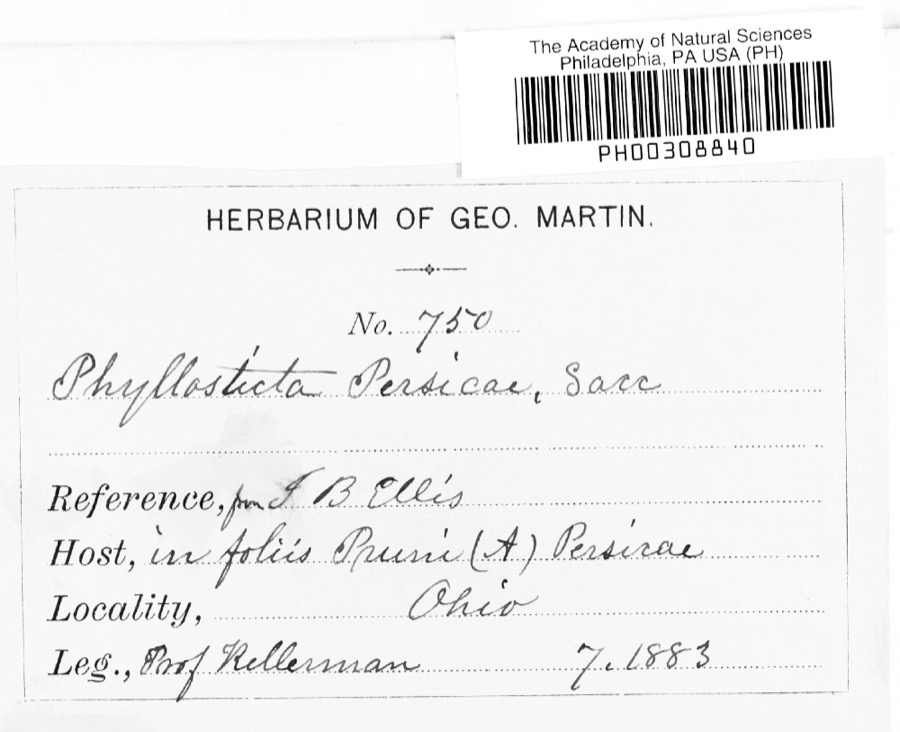 The Academy of Natural Sciences
Philadelphia, PA USA (PH)
PH00308840
HERBARIUM OF GEO. MARTIN.
No. 750
Phyllosticta Persicae, Sacc
Reference, from J B Ellis
Host, in foliis Pruni (A) Persicae
Locality, Ohio
Leg., Prof Kellerman 7. 1883